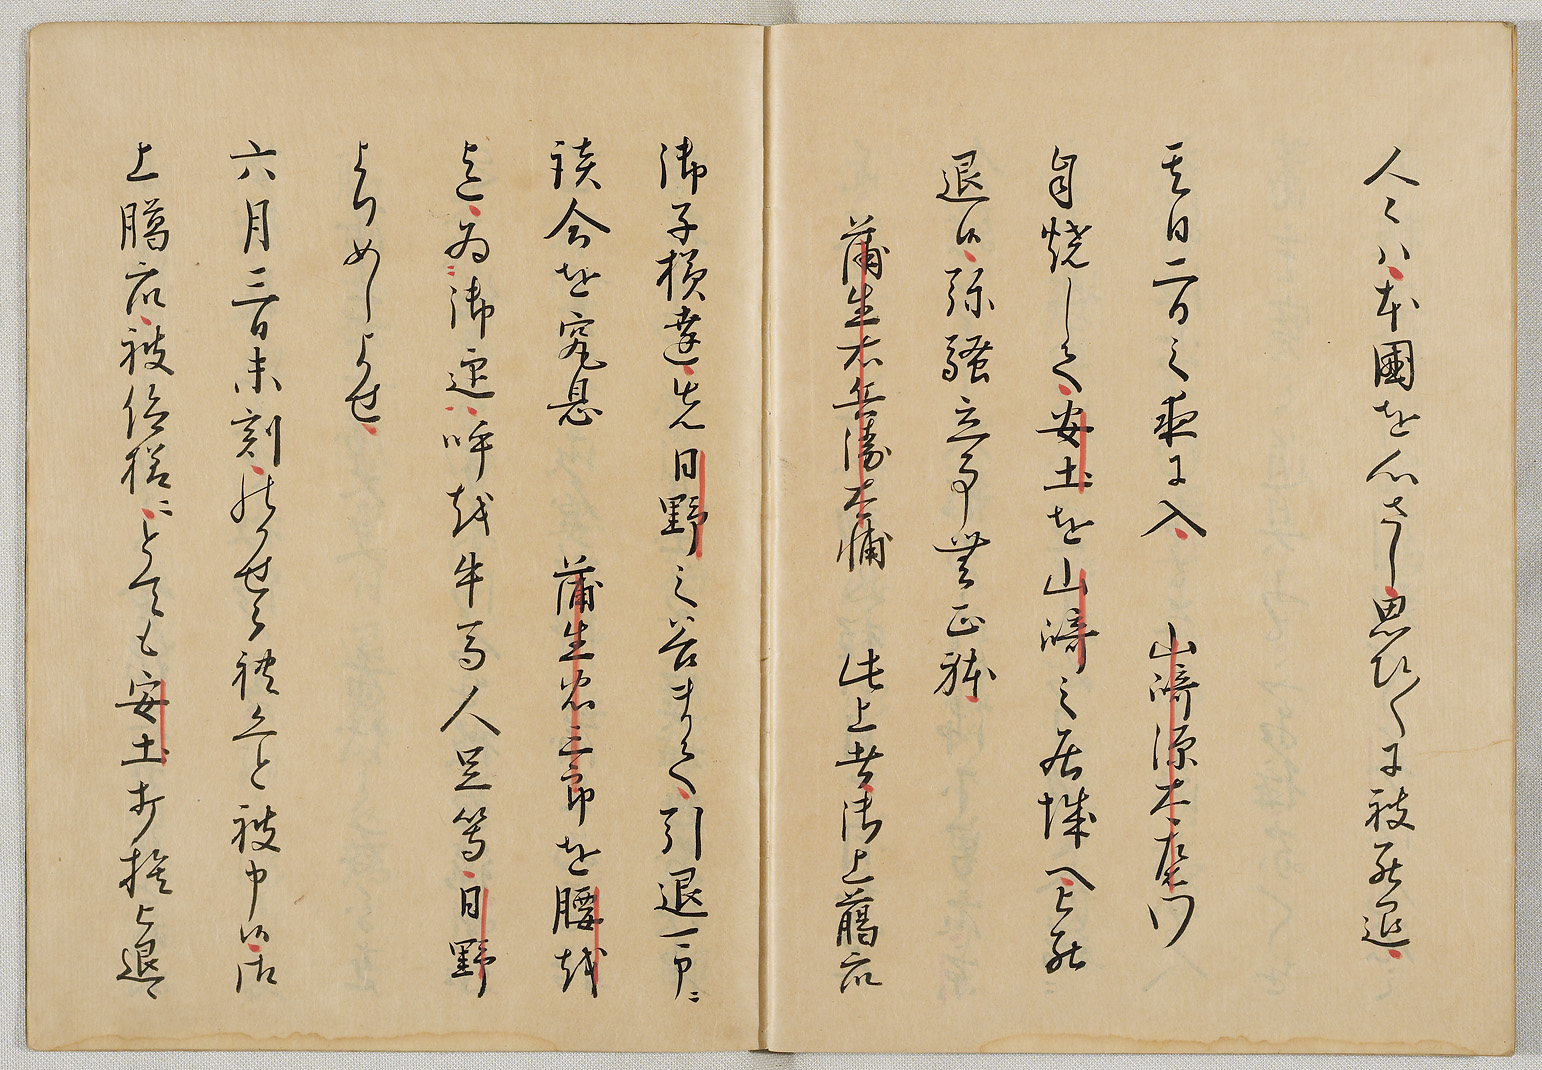 人々ハ本國を心さし思ひ〳〵に被罷退
其日二日之夜に入山崎源太左衛門
自焼して安土を山崎之居城へ被罷
退候弥騒立事無正躰
蒲生右兵衛太輔此上者御上﨟衆
御子様達先日野之谷まて引退一戸ニ
談合を究息蒲生忠三郎を腰越
迄為御迎呼越牛馬人足等日野
よりめしよせ
六月三日未刻のかせらけ候へと被申候御
上﨟衆被仰様ニとても安土打捨被退